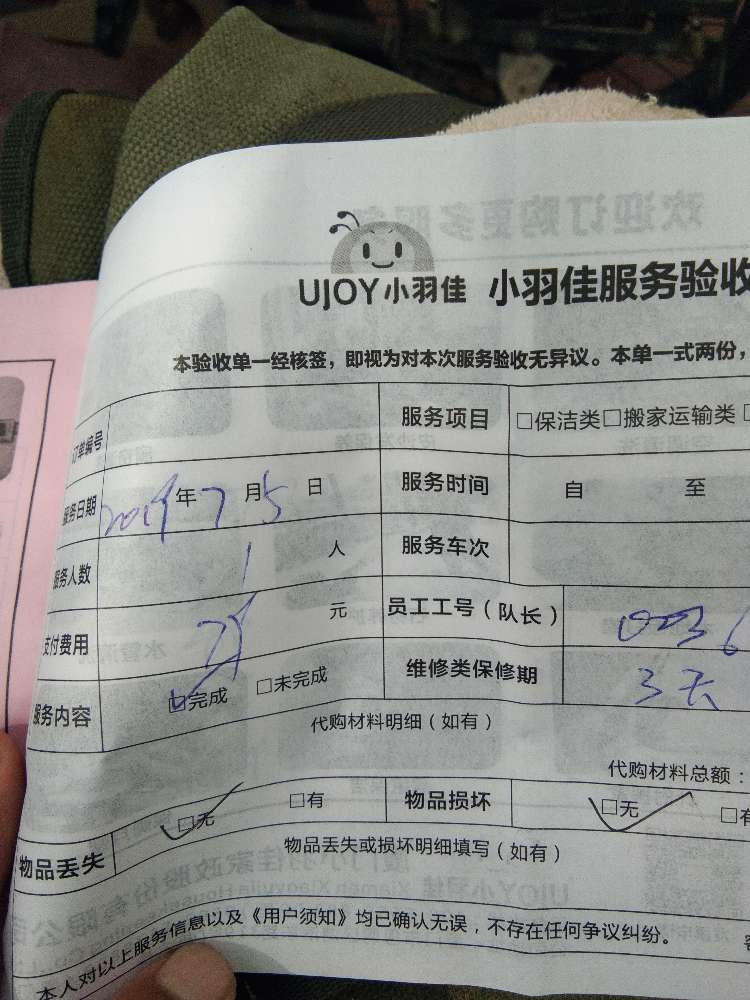 UJOY小羽佳 小羽佳服务验收
本验收单一经核签，即视为对本次服务验收无异议。本单一式两份，
订单编号 服务项目 □保洁类□搬家运输类
服务日期 2019年7月5日 服务时间 自 至
服务人数 1 人 服务车次
支付费用 元 员工工号（队长） 0036
服务内容 ☑完成 □未完成 维修类保修期 3天
代购材料明细（如有）
代购材料总额：
物品丢失 ☑无 □有 物品损坏 ☑无 □有
物品丢失或损坏明细填写（如有）
本人对以上服务信息以及《用户须知》均已确认无误，不存在任何争议纠纷。